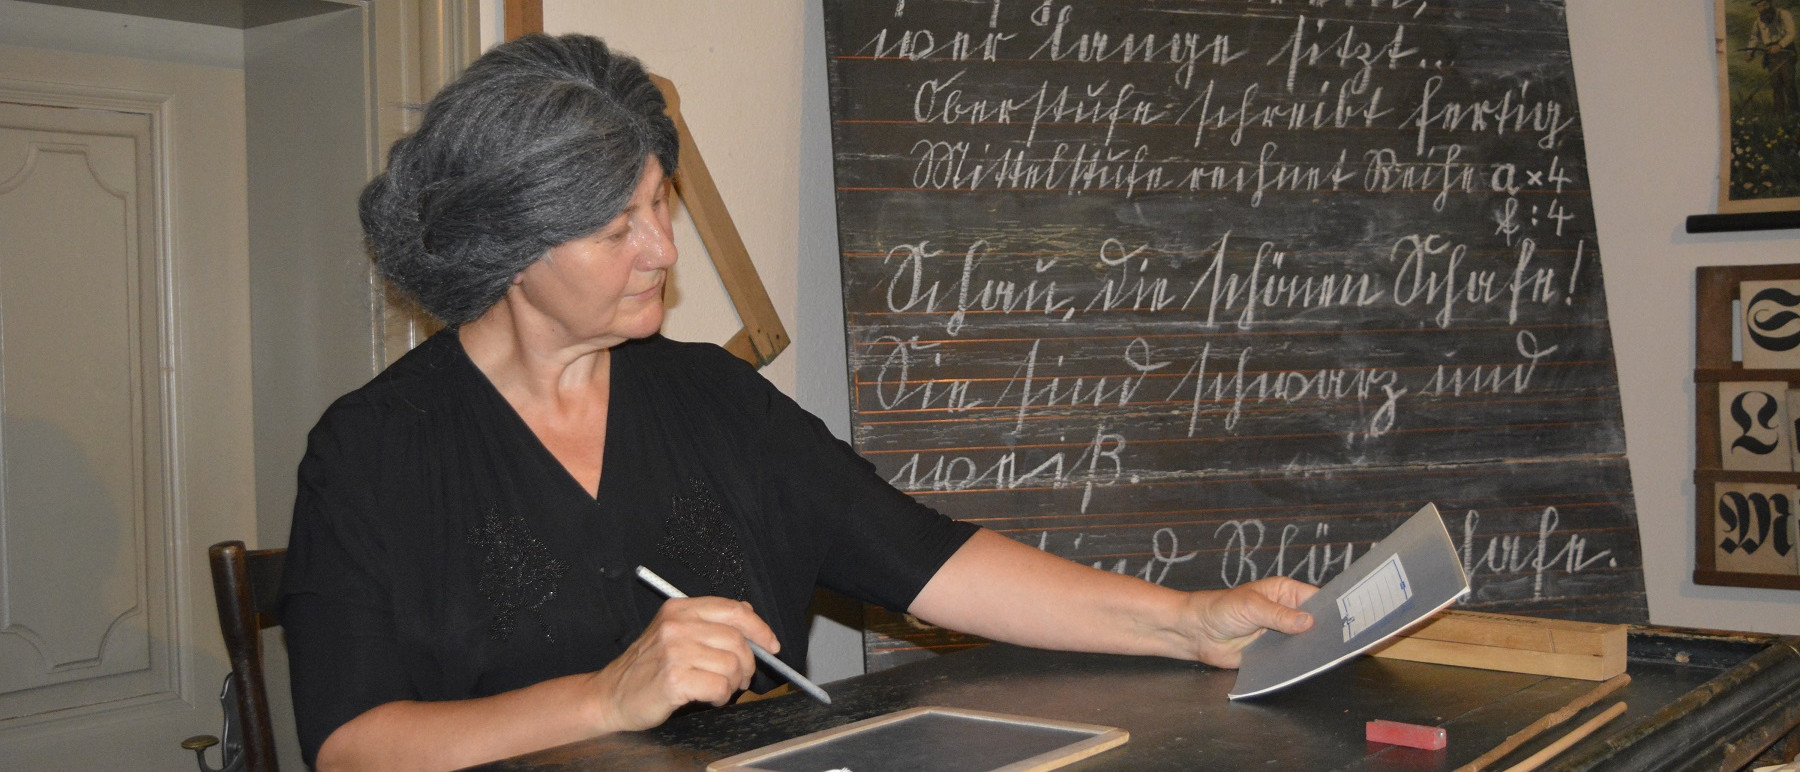 wer lange sitzt..
Oberstufe schreibt fertig
Mittelstufe rechnet Reihe a × 4
: 4
Schau, die schönen Schafe!
Sie sind schwarz und
weiß.
sind
S
L
M